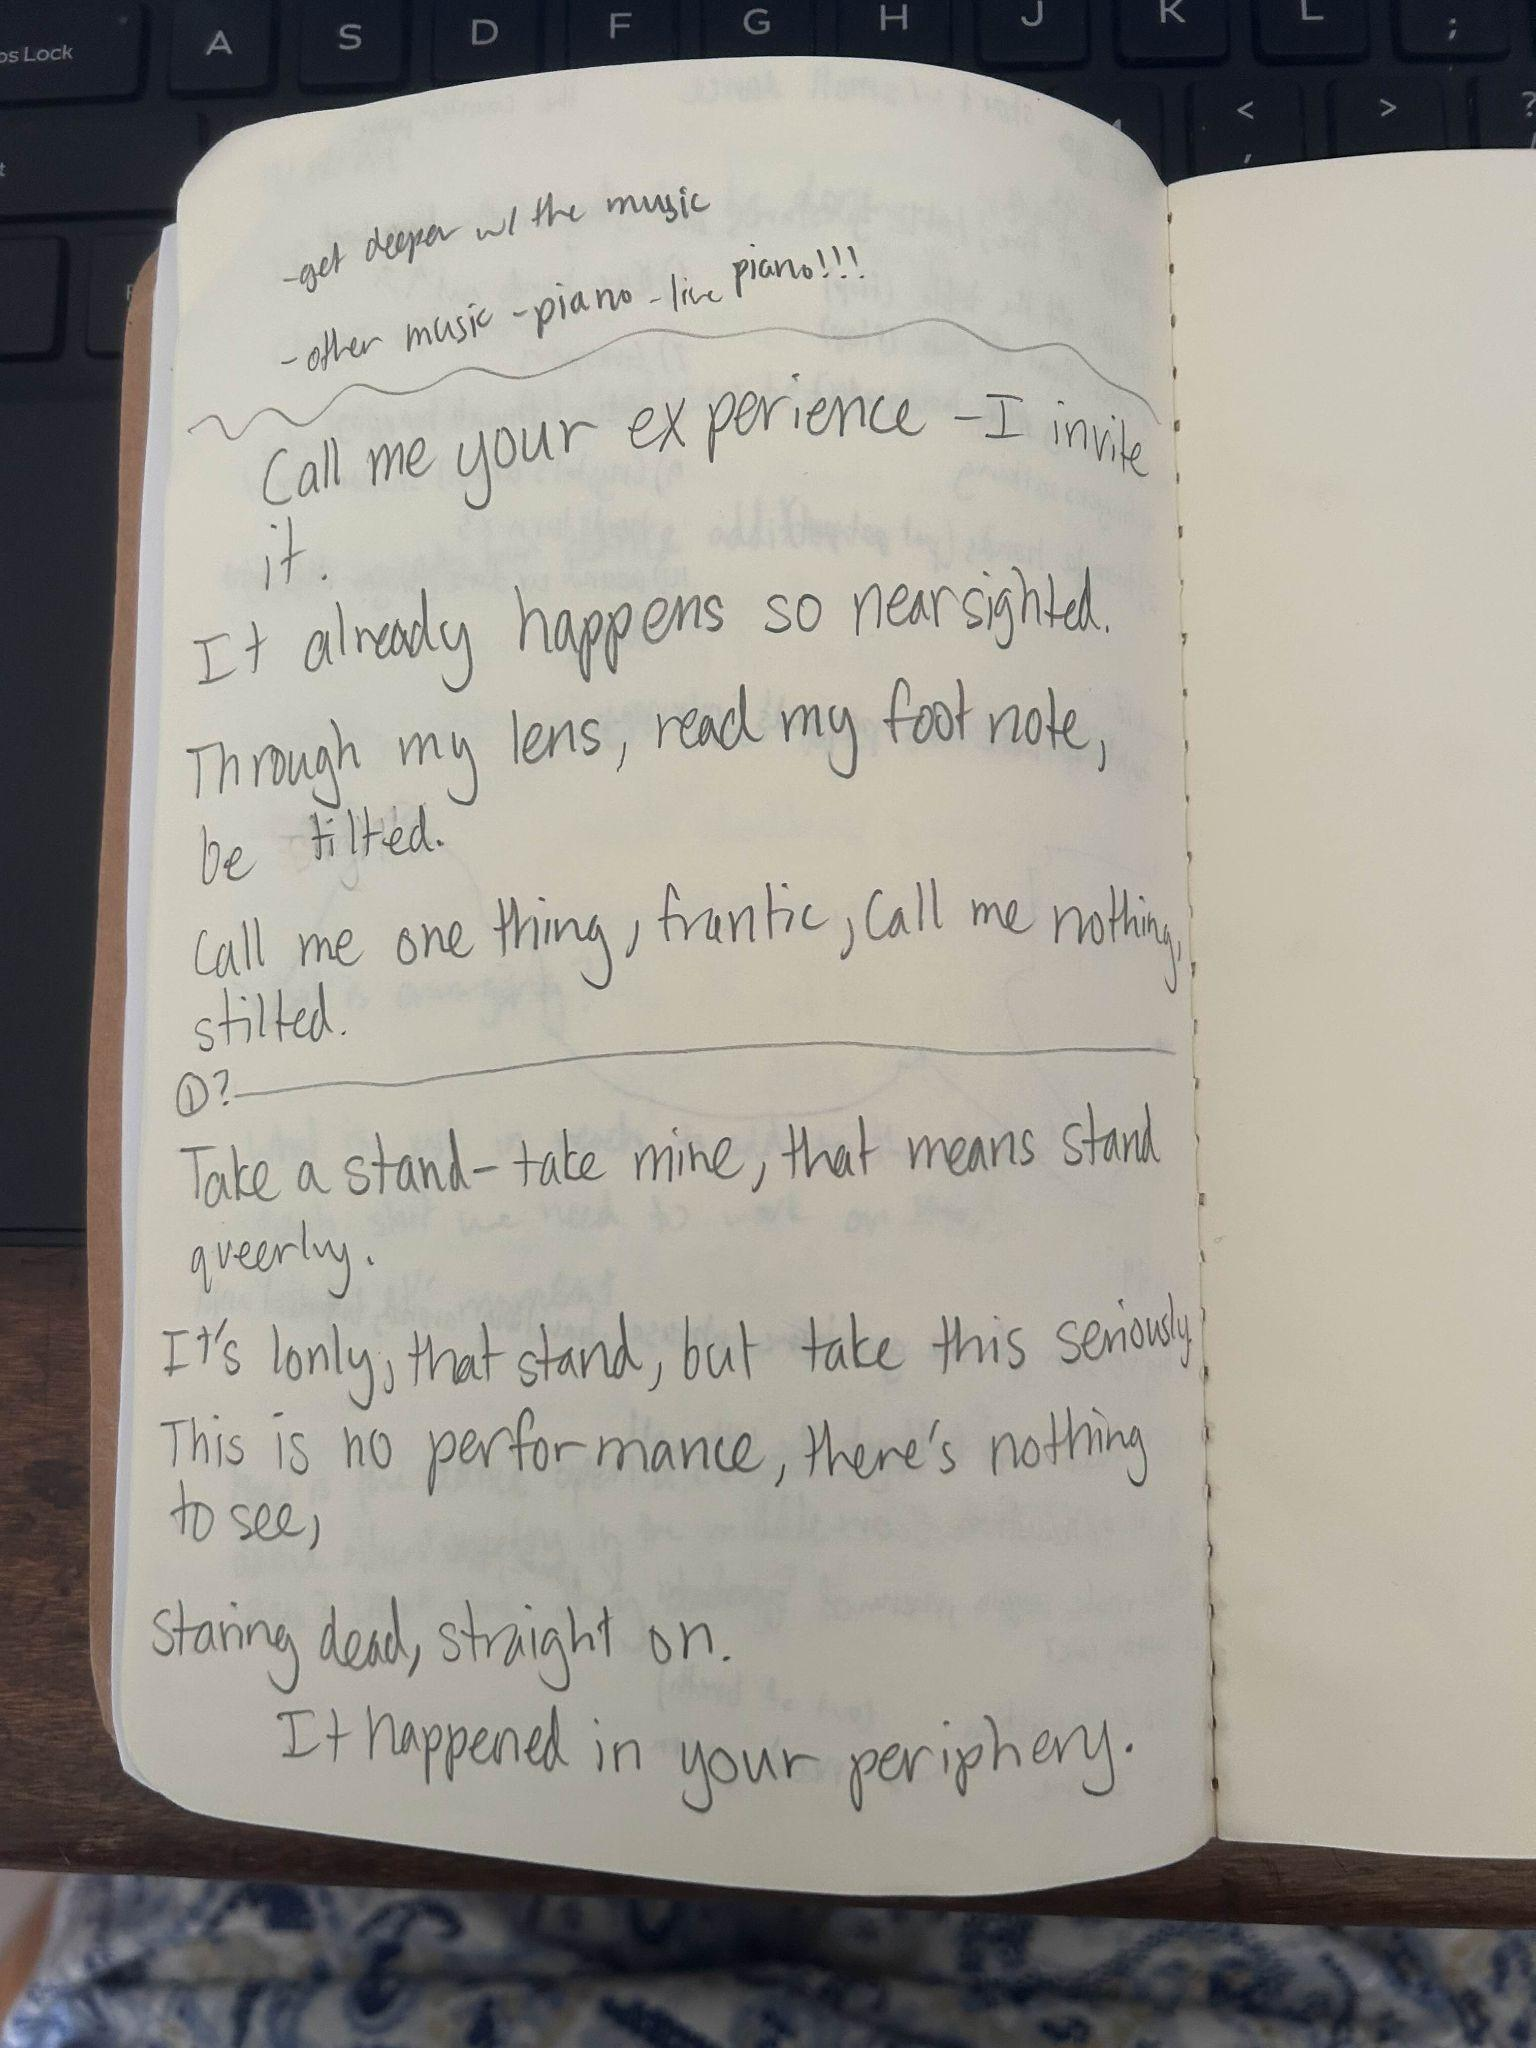 os Lock A S D F G H J K L ;
< > ?
,
-get deeper w/ the music
-other music -piano -live piano!!!
Call me your experience -I invite
it.
It already happens so nearsighted.
Through my lens, read my foot note,
be tilted.
Call me one thing, frantic, Call me nothing,
stilted.
①?
Take a stand- take mine, that means stand
queerly.
It's lonly, that stand, but take this seriously.
This is no performance, there's nothing
to see,
staring dead, straight on.
It happened in your periphery.